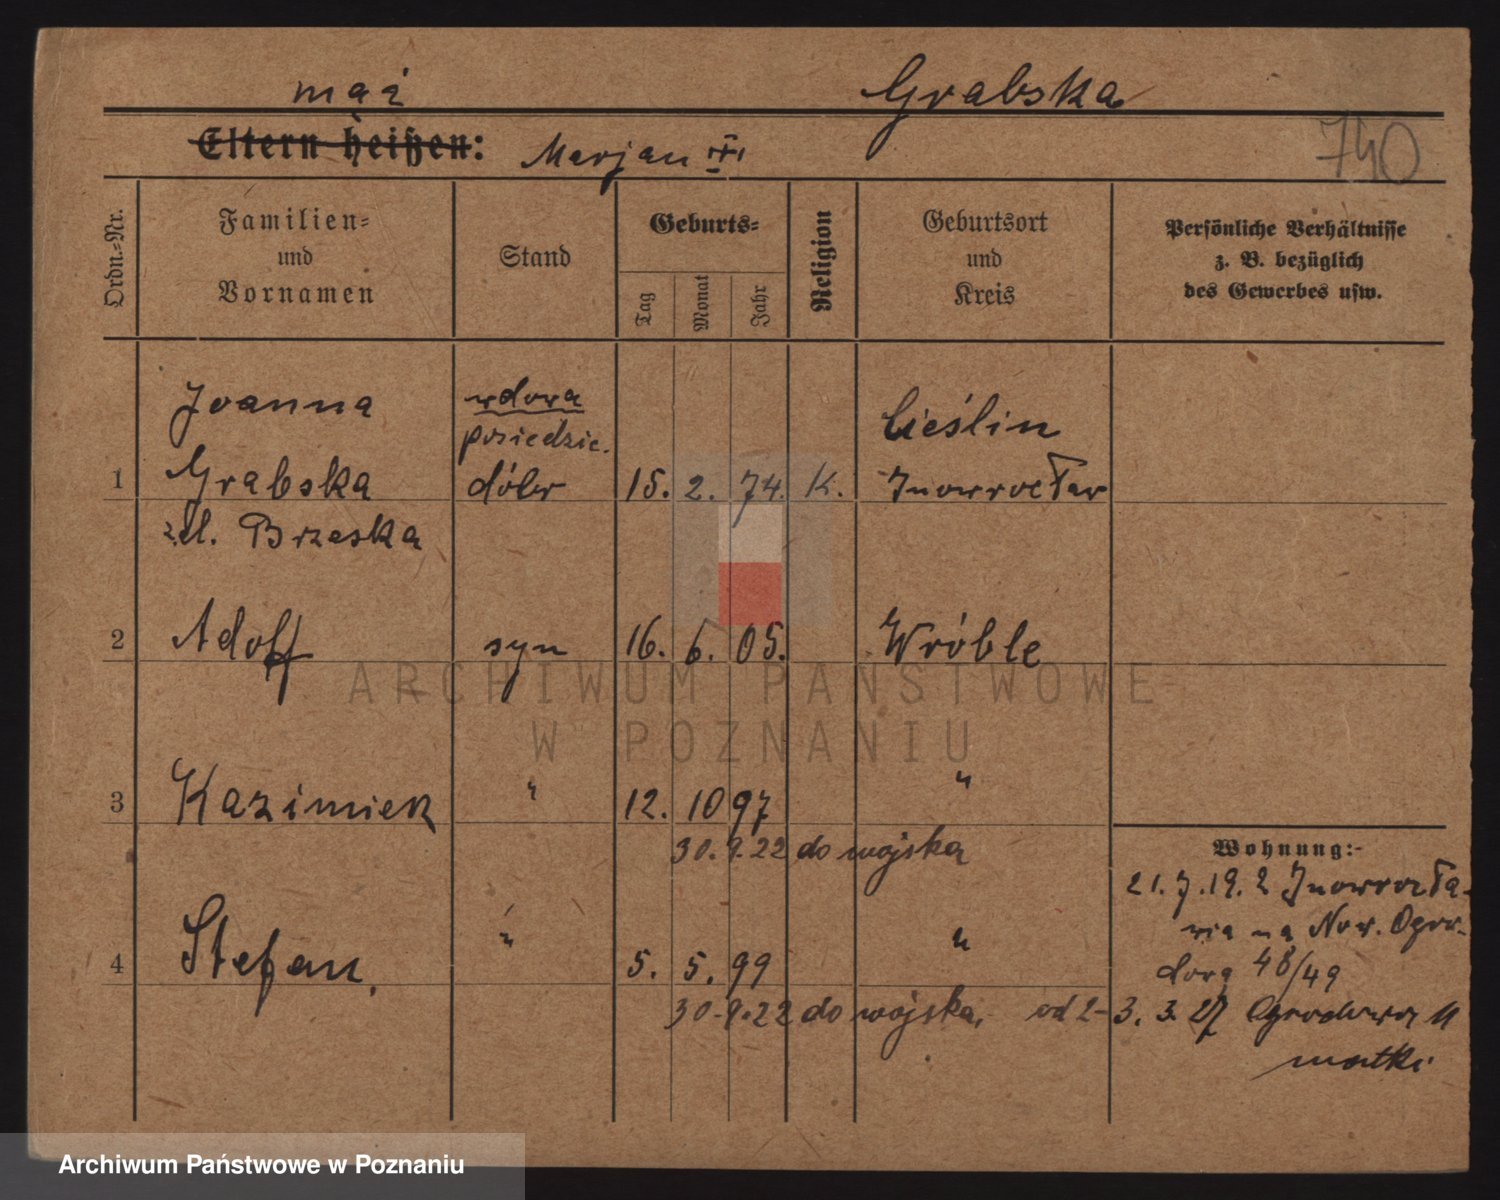 mąż
Grabska
Eltern heißen: Marjan III
740
Ordn.-Nr.
Familien-
und
Vornamen
Stand
Geburts-
Tag
Monat
Jahr
Religion
Geburtsort
und
Kreis
Persönliche Verhältnisse
z. B. bezüglich
des Gewerbes usw.
Joanna
wdowa
posiedzic.
Cieślin
1 Grabska dóbr 15. 2. 74. K. Inowrocław
zd. Brzeska
2 Adolf syn 16. 6. 05. Wróble
3 Kazimierz " 12. 10 97 "
30. 9. 22 do wojska
Wohnung:-
21. 7. 19. z Inowrocła-
wia na Now. Ogro-
4 Stefan, " 5. 5. 99 "
dową 48/49
30-9.22 do wojska, od 2-3. 3. 27 Ogrodowa 11
matki
ARCHIWUM PAŃSTWOWE
W POZNANIU
Archiwum Państwowe w Poznaniu